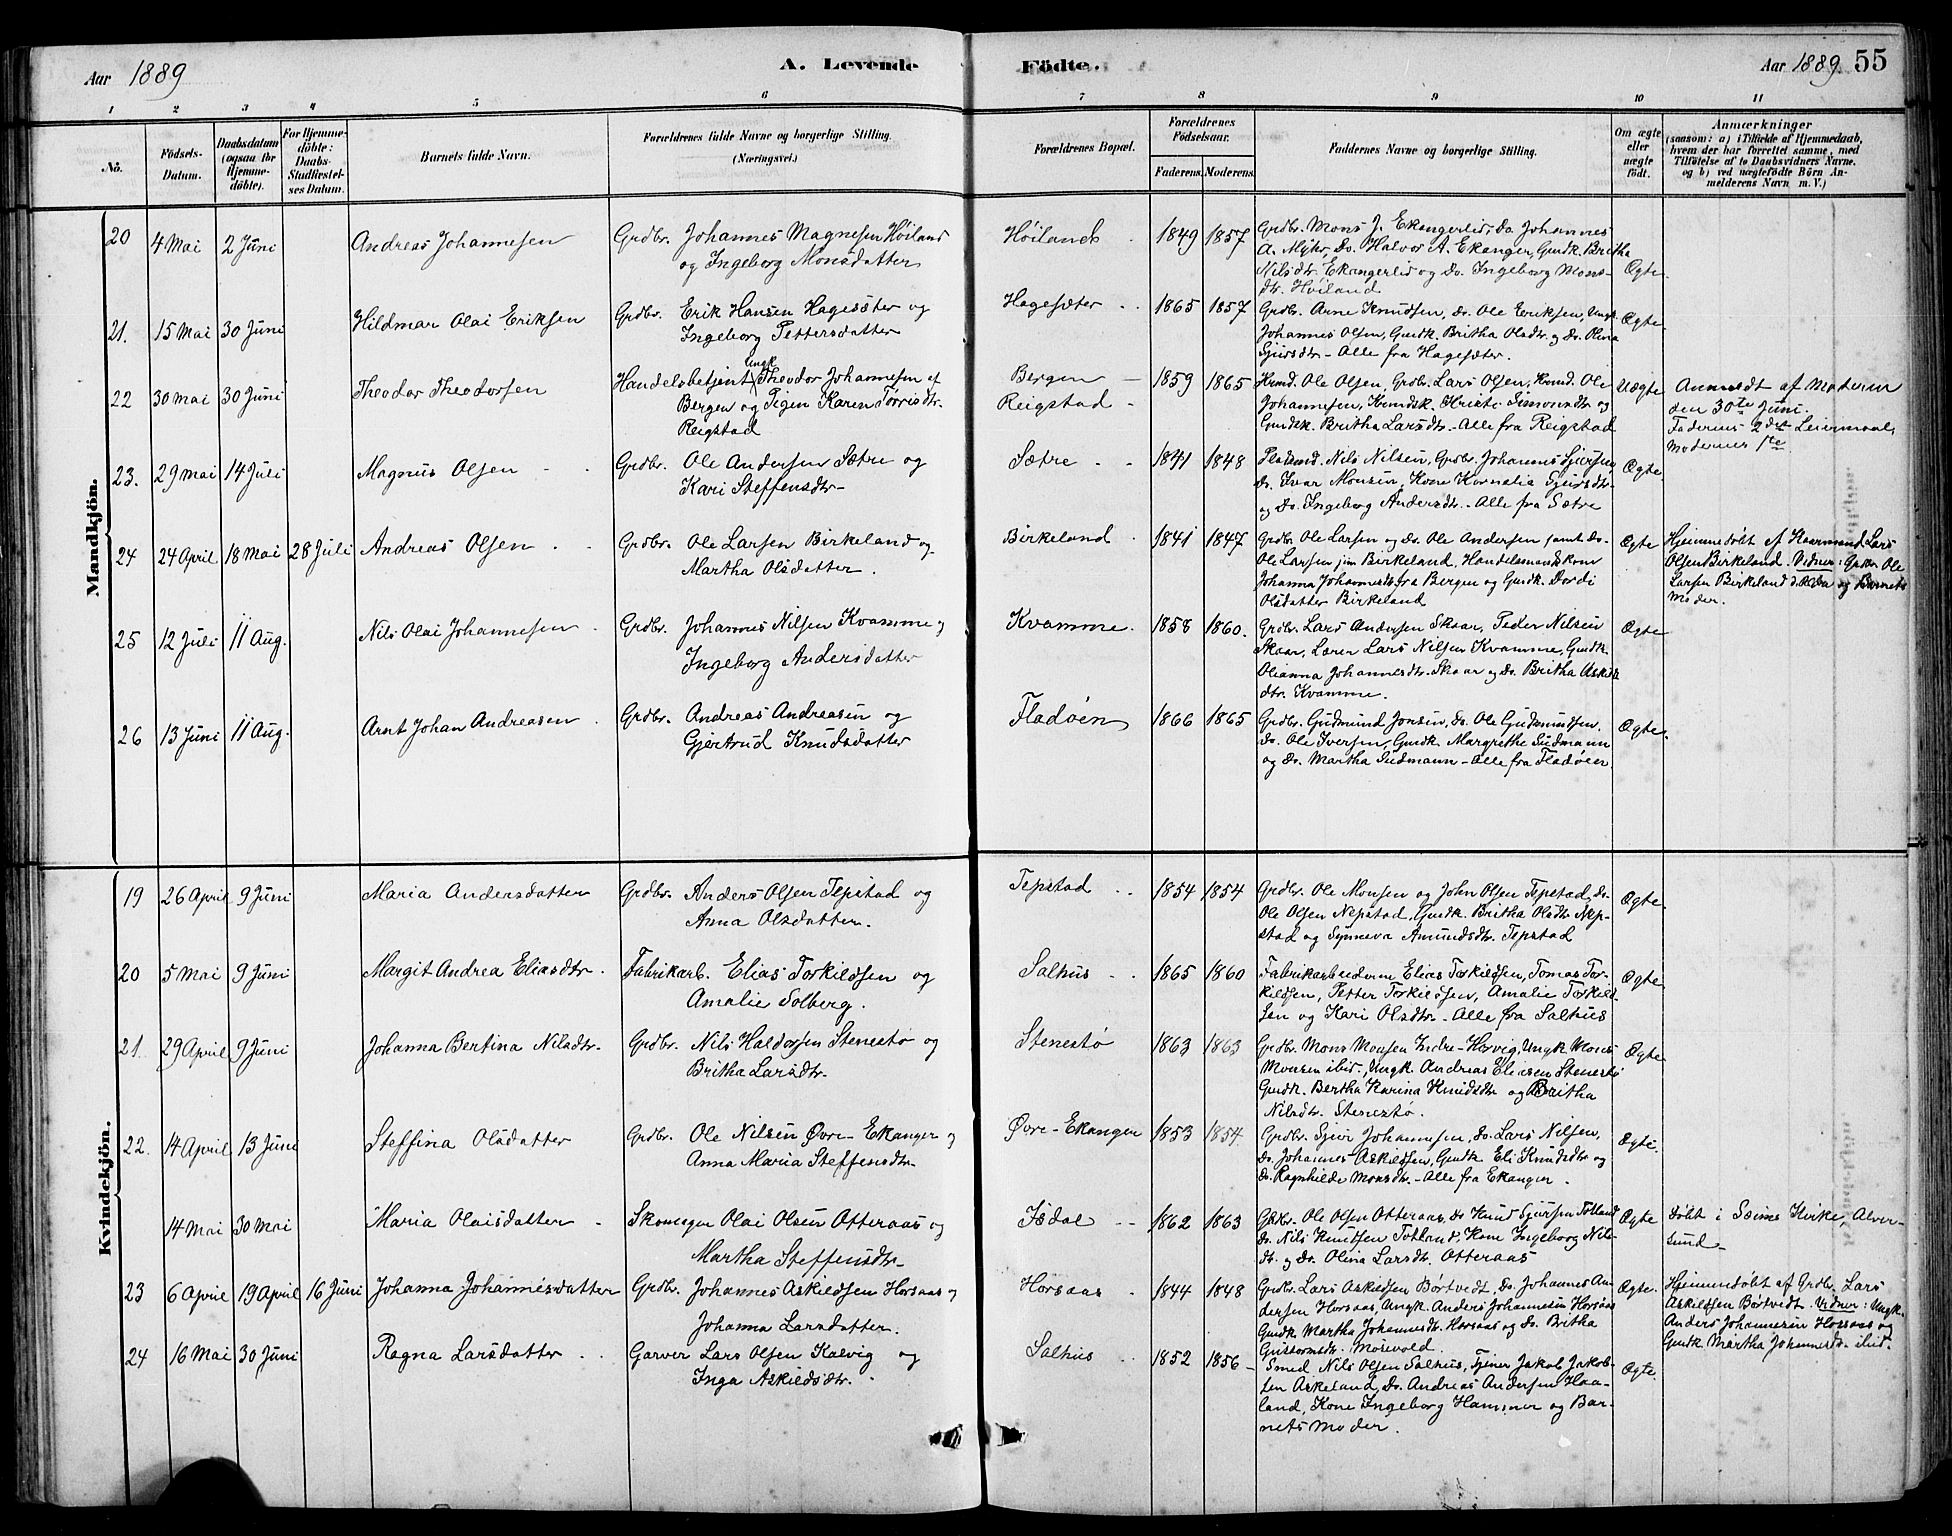 Aar 1889
A. Levende Födte.
Aar 1889. 55
1 2 3 4 5 6 7 8 9 10 11
No.
Födsels-
Datum.
Daabsdatum
(ogsaa for
Hjemme-
döbte).
For Hjemme-
döbte:
Daabs-
Stadfæstel-
ses Datum.
Barnets fulde Navn.
Forældrenes fulde Navne og borgerlige Stilling.
(Næringsvei.)
Forældrenes Bopæl.
Forældrenes
Födselsaar.
Faderens. Moderens.
Faddernes Navne og borgerlige Stilling.
Om ægte
eller
uægte
födt.
Anmærkninger
(saasom: a) i Tilfælde af Hjemmedaab,
hvem der har forrettet samme, med
Tilföielse af to Daabsvidners Navne.
og b) ved uægtefödte Börn An-
melderens Navn m. V.)
Mandkjön.
20 4 Mai 2 Juni Andreas Johannesen
Grdbr. Johannes Magnesen Höiland
og Ingeborg Monsdatter
Höiland . 1849 1857
Grdbr. Mons J. Ekangerlid, Do. Johannes
A. Myhr, Do. Halvor A. Ekanger, Gmdk. Britha
Nilsdtr. Ekangerlid og Do. Ingeborg Mons-
dtr. Höiland
Ægte.
21. 15 Mai 30 Juni Hildmar Olai Eriksen
Grdbr. Erik Hansen Hagesæter og
Ingeborg Pettersdatter
Hagesæter . . 1865 1857
Grdbr. Arne Knudsen, Do. Ole Eriksen, Ungk.
Johannes Olsen, Gmdk. Britha Olsdtr. og Do. Olina
Sjursdtr. - Alle fra Hagesæter.
Ægte.
22 30 Mai 30 Juni Theodor Theodorsen
Handelsbetjent Ungk. Theodor Johannesen af
Bergen og Pigen Karen Torrisdtr.
Reigstad
Bergen —
Reigstad - 1859 1865
Husmd. Ole Olsen, Grdbr. Lars Olsen, Husmd. Ole
Johannesen, Husmdsk. Kristi Simonsdtr. og
Gmdk. Britha Larsdtr. - Alle fra Reigstad
Uægte
Anmeldt af Moderen
den 30te Juni.
Faderens 2det Leiermaal,
Moderens 1te
23. 29 Mai 14 Juli Magnus Olsen - -
Grdbr. Ole Andersen Sætre og
Kari Steffensdtr. -
Sætre . . 1841 1848
Nils Nilsen, Grdbr. Johannes Sjursen,
Do. Ivar Monsen, Kone Kornelia Sjursdtr.
og Do. Ingeborg Andersdtr. - Alle fra Sætre
Ægte.
24 24 April 18 Mai 28 Juli Andreas Olsen . .
Grdbr. Ole Larsen Birkeland og
Martha Olsdatter .
Birkeland . 1841 1847
Grdbr. Ole Larsen og Do. Ole Andersen samt Do.
Ole Larsen jun Birkeland, Handelsmandskone
Johanna Johannesdtr. fra Bergen og Gmdk. Dordi
Olsdatter Birkeland
Ægte
Hjemmedöbt af Kaarmand Lars
Olsen Birkeland. Vidner: Grdbr. Ole
Larsen Birkeland og Barnets
Moder.
25 12 Juli 11 Aug. Nils Olai Johannesen .
Grdbr. Johannes Nilsen Kvamme og
Ingeborg Andersdatter
Kvamme. 1858 1860.
Grdbr. Lars Andersen Skaar, Peder Nilsen
Skaar, Lærer Lars Nilsen Kvamme, Gmdk.
Olianna Johannesdtr. Skaar og Do. Britha Askilds-
dtr. Kvamme.
Ægte
26 13 Juni 11 Aug. Arnt Johan Andreasen .
Grdbr. Andreas Andreasen og
Gjertrud Knudsdatter
Fladöen 1866 1865
Grdbr. Gudmund Jonsen, Do. Ole Gudmundsen,
Do. Ole Iversen, Gmdk. Margrethe Sudmann
og Do. Martha Sudmann - Alle fra Fladöen
Ægte.
Kvindekjön.
19 26 April 9 Juni Maria Andersdatter
Grdbr. Anders Olsen Tepstad og
Anna Olsdatter.
Tepstad . . 1854 1854
Grdbr. Ole Monsen og John Olsen Tepstad, Do.
Ole Olsen Nepstad, Gmdk. Britha Olsdtr. Nep-
stad og Synneva Amundsdtr. Tepstad
Ægte.
20 5 Mai 9 Juni Margit Andrea Eliasdtr. .
Fabrikarb. Elias Torkildsen og
Amalie Solberg.
Salhus . . 1865 1860
Fabrikarbeiderne Elias Torkildsen, Tomas Tor-
kildsen, Petter Torkildsen, Amalie Torkild-
sen og Kari Olsdtr. - Alle fra Salhus
Ægte.
21. 29 April 9 Juni Johanna Bertina Nilsdtr.
Grdbr. Nils Haldorsen Stenestö og
Britha Larsdtr.
Stenestö 1863 1863
Grdbr. Mons Monsen Indre-Horvig, Ungk. Mons
Monsen ibid., Ungk. Andreas Eliesen Stenestö
Gmdk. Bertha Karina Knudsdtr. og Britha
Nilsdtr. Stenestö.
Ægte
22. 14 April 13 Juni Steffina Olsdatter
Grdbr. Ole Nilsen Övre-Ekanger og
Anna Maria Steffensdtr.
Övre-Ekanger 1853 1854.
Grdbr. Sjur Johannesen, Do. Lars Nilsen,
Do. Johannes Askildsen, Gmdk. Eli Knudsdtr. og
Do. Ragnhilde Monsdtr. - Alle fra Ekanger .
Ægte.
14 Mai 30 Mai Maria Olaisdatter .
Skomager Olai Olsen Otteraas og
Martha Steffensdtr.
Isdal - - 1862 1863
Grdbr. Ole Olsen Otteraas, Do Knud Sjursen Totland
Do. Nils Knudsen Totland, Kone Ingeborg Nils-
dtr. og Do. Olina Larsdtr. Otteraas
Ægte
Döbt i Seims Kirke, Alver-
sund -
23 6 April 19 April 16 Juni Johanna Johannesdatter
Grdbr. Johannes Askildsen Horsaas og
Johanna Larsdatter.
Horsaas . 1844 1848
Grdbr. Lars Askildsen Börtvedt, Do. Johannes An-
dersen Horsaas, Ungk. Anders Johannesen Horsaas
Gmdk. Martha Johannesdtr. Horsaas og Do. Britha
Guttormsdtr. Mosevold.
Ægte.
Hjemmedöbt af Grdbr. Lars
Askildsen Börtvedt. Vidner: Ungk.
Anders Johannesen Horsaas og
Gmdk. Martha Johannesdtr. ibid.
24 16 Mai 30 Juni Ragna Larsdatter . .
Garver Lars Olsen Kalvig og
Inga Askildsdtr. .
Salhus . 1852 1856 -
Smed Nils Olsen Salhus, Tjener Jakob Jakob-
sen Askeland, Do. Andreas Andersen Haa-
land, Kone Ingeborg Hammer og Bar-
nets Moder.
Ægte.